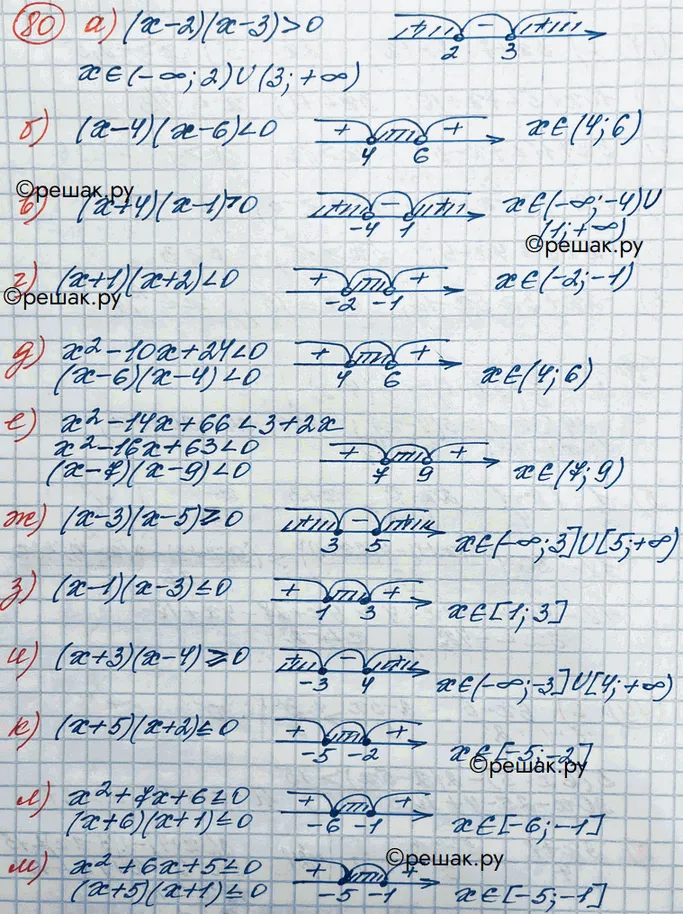 80 а) (x-2)(x-3)>0 + - + 2 3
x∈(-∞; 2)∪(3; +∞)
б) (x-4)(x-6)<0 + + 4 6 x∈(4; 6)
©решак.ру
в) (x+4)(x-1)>0 + - + -4 1 x∈(-∞; -4)∪
(1; +∞)
©решак.ру
г) (x+1)(x+2)<0 + + -2 -1 x∈(-2; -1)
©решак.ру
д) x²-10x+24<0 + + 4 6
(x-6)(x-4)<0 x∈(4; 6)
е) x²-14x+66<3+2x
x²-16x+63<0 + + 7 9
(x-7)(x-9)<0 x∈(7; 9)
ж) (x-3)(x-5)≥0 + - + 3 5 x∈(-∞; 3]∪[5; +∞)
з) (x-1)(x-3)≤0 + + 1 3 x∈[1; 3]
и) (x+3)(x-4)≥0 + - + -3 4 x∈(-∞; -3]∪[4; +∞)
к) (x+5)(x+2)≤0 + + -5 -2 x∈[-5; -2]
©решак.ру
л) x²+7x+6≤0 + + -6 -1
(x+6)(x+1)≤0 x∈[-6; -1]
©решак.ру
м) x²+6x+5≤0 + + -5 -1
(x+5)(x+1)≤0 x∈[-5; -1]